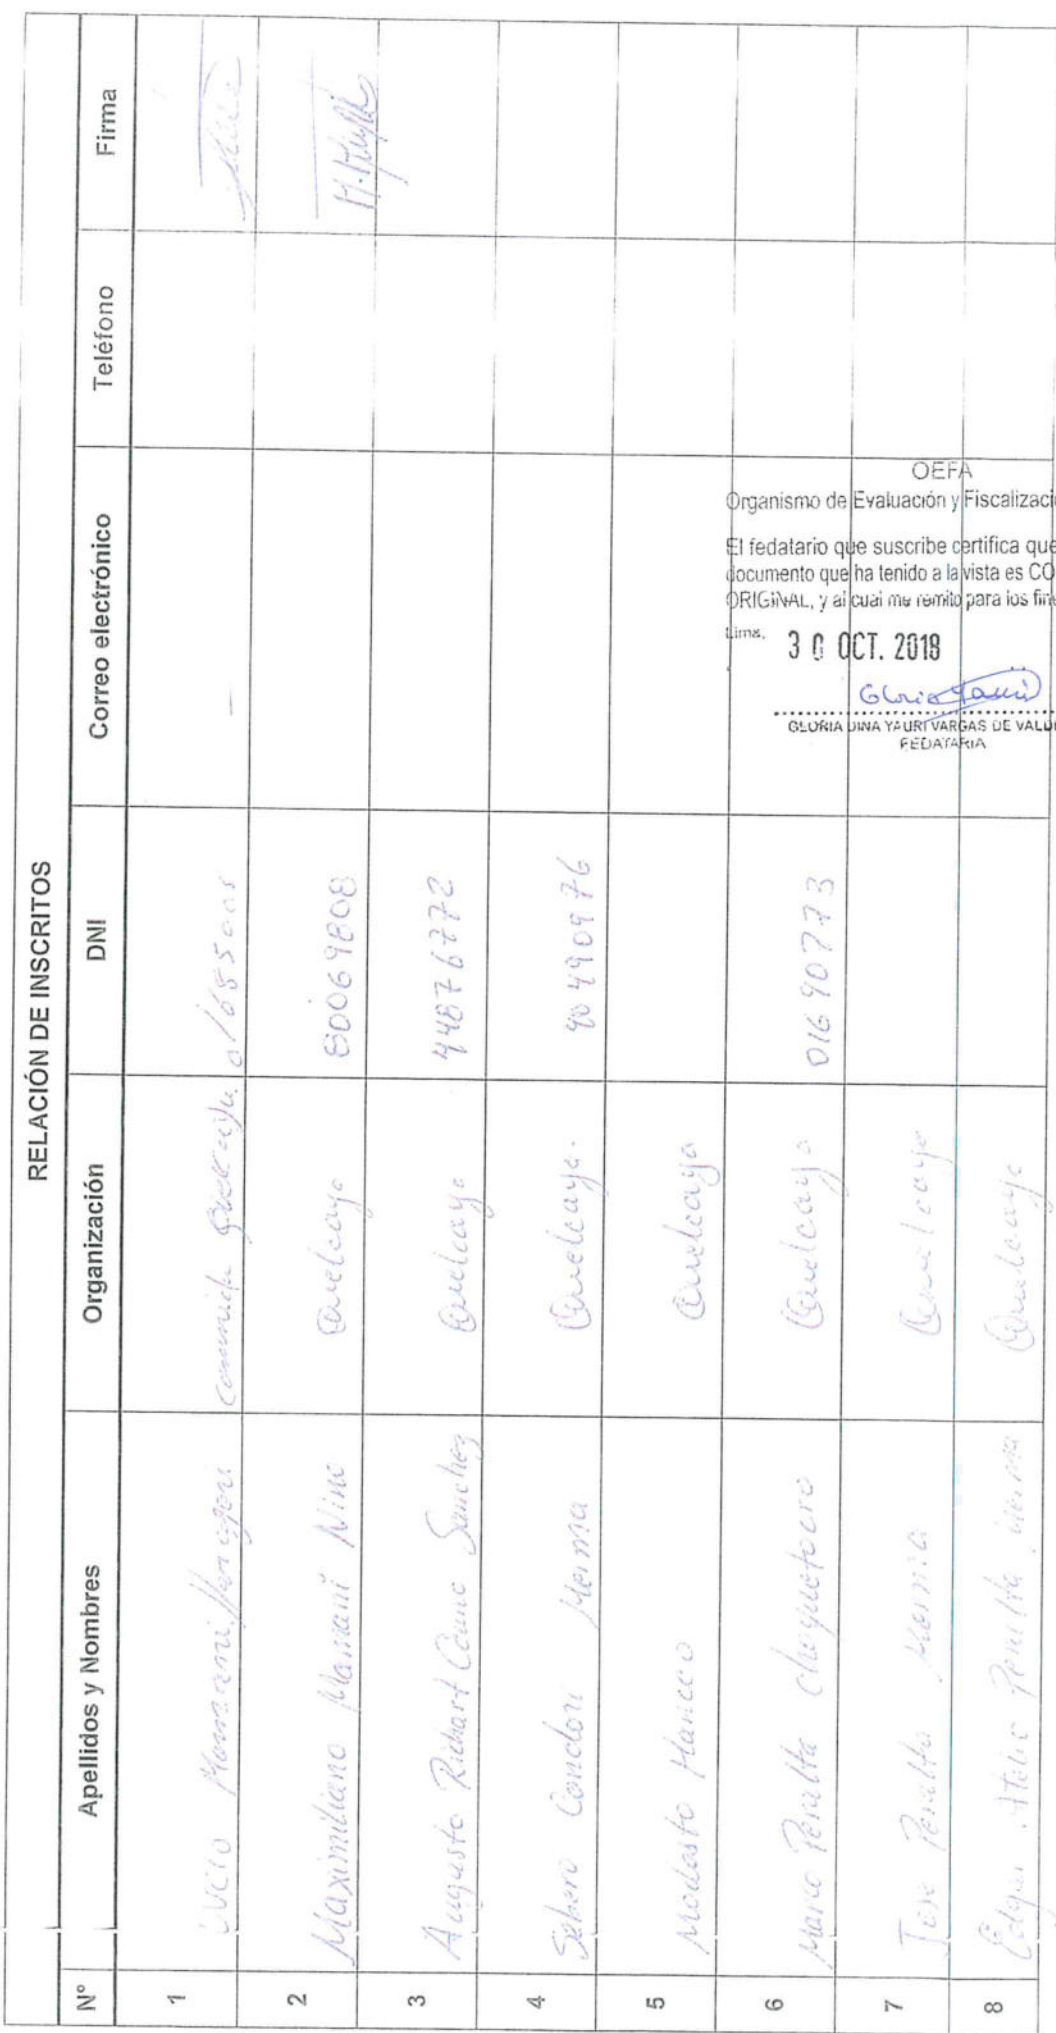 RELACIÓN DE INSCRITOS
N° Apellidos y Nombres Organización DNI Correo electrónico Teléfono Firma
1 Mamani —
2 Maximiliano Mamani Nino Quelcaya 80069808
3 Augusto Richart Sanchez Quelcaya 44876772
4 Condori Merma Quelcaya. 40490976
5 Modesto Hancco Quelcaya
6 Mario Peralta Quelcaya 01690773
7 Jose Peralta Merma Quelcaya
8 Edgar Peralta Merma Quelcaya
OEFA
Organismo de Evaluación y Fiscalizaci
El fedatario que suscribe certifica que
documento que ha tenido a la vista es CO
ORIGINAL, y al cual me remito para los fin
Lima, 30 OCT. 2018
GLORIA DINA YAURI VARGAS DE VALD
FEDATARIA